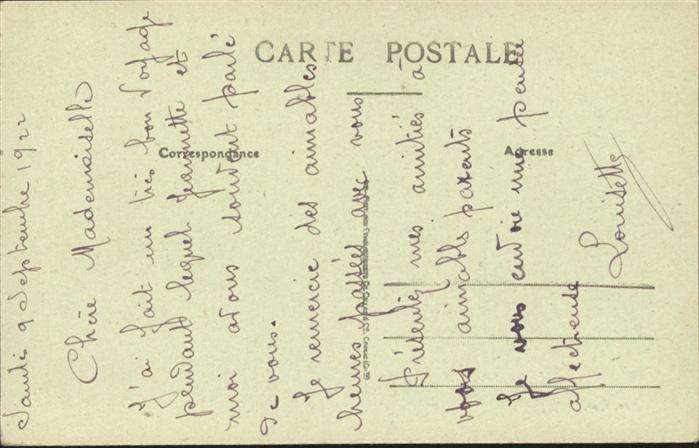 CARTE POSTALE
Correspondance
Adresse
9 Septembre 1922
Chère Mademoiselle
J'ai fait un très bon voyage
pendant lequel Jeannette et
moi avons souvent parlé
de vous.
Je remercie des aimables
heures passées avec vous
Présentez mes amitiés à
vos aimables parents
Je vous envoie une pensée
affectueuse
Louisette